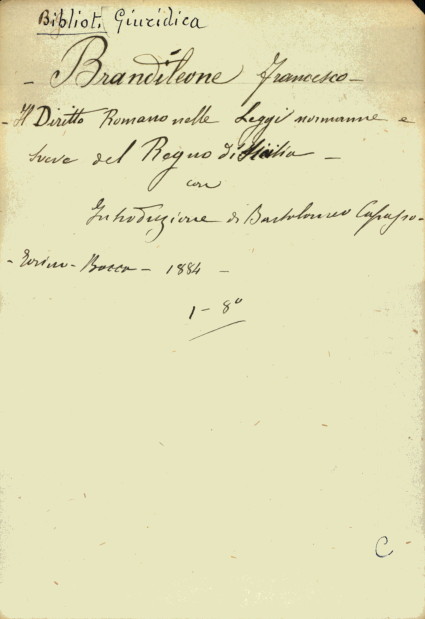 Bibliot. Giuridica
- Brandileone Francesco -
- Il Diritto Romano nelle Leggi normanne e
sveve del Regno di Sicilia -
con
Introduzione di Bartolomeo Capasso -
- Torino - Bocca - 1884 -
1 - 8°
C